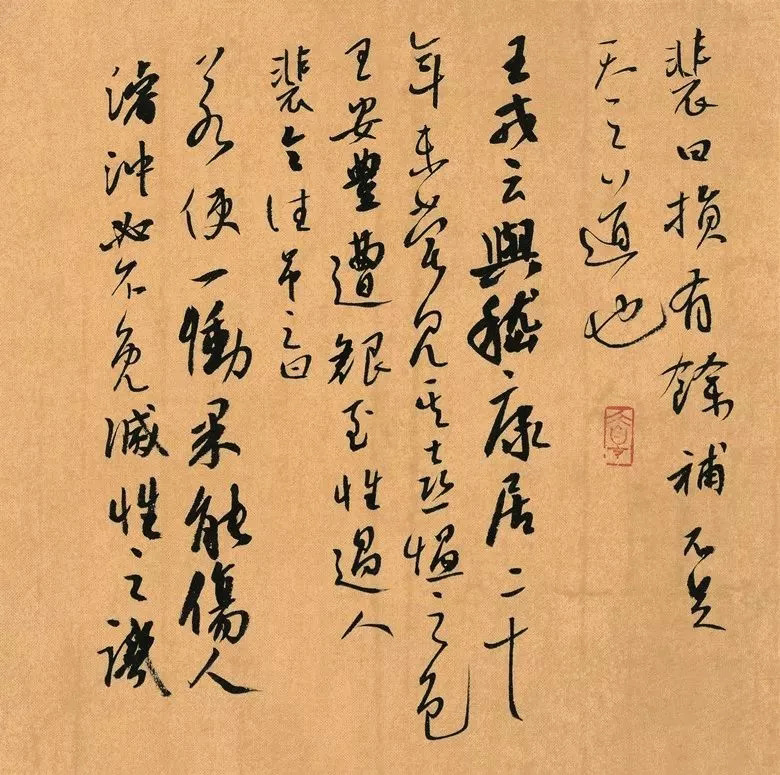 裴曰損有餘補不足
天之道也
王戎云與嵇康居二十
年未嘗見其喜慍之色
王安豐遭艱至性過人
裴令往吊之曰
若使一慟果能傷人
濬沖必不免滅性之譏